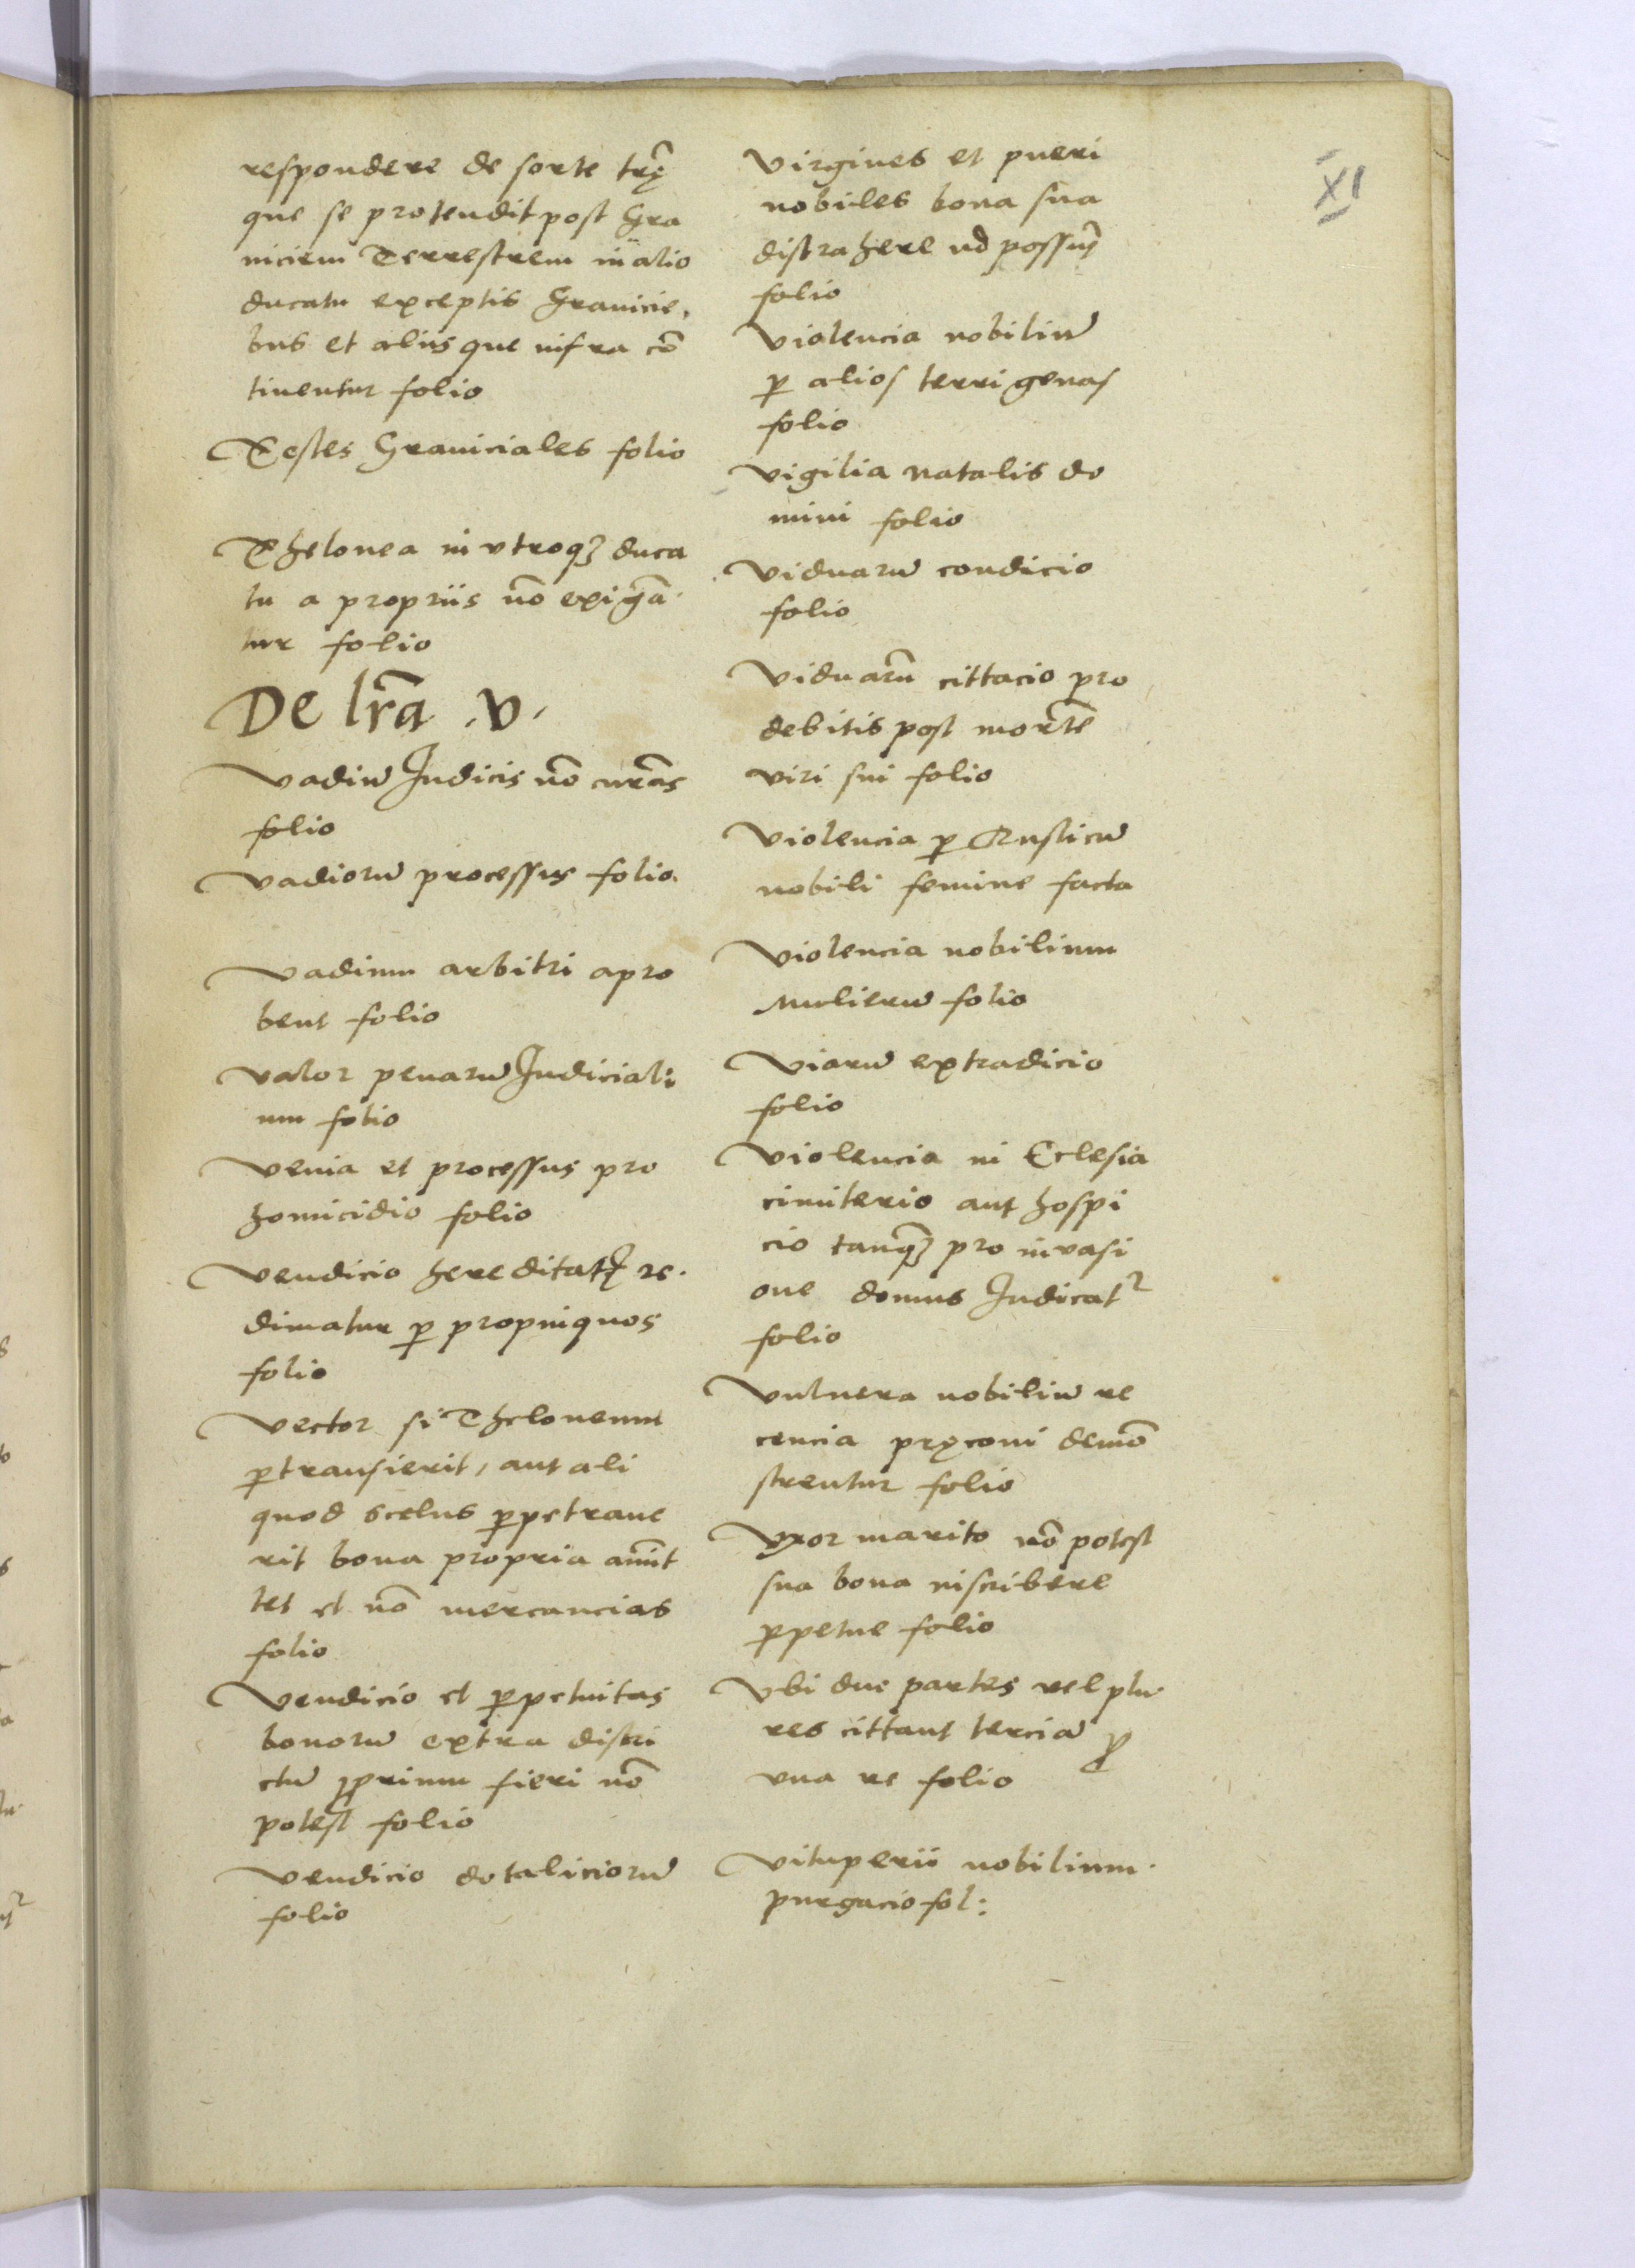 respondere de sorte trę̃
que se protendit post Gra
niciem Terrestrem in alio
ducatu exceptis Granicie,
bus et aliis que infra cõ
tinentur folio
Testes Graniciales folio
Thelonea in vtroqꝫ duca
tu a propriis nõ exigã
tur folio
De lr̃a .v.
Vadiũ Judicis nõ curãs
folio
Vadiorũ processus folio.
Vadium arbitri apro
bent folio
Valor penarũ Judiciali
um folio
Venia et processus pro
homicidio folio
Vendicio hereditatꝭ re.
dimatur ꝑ propinquos
folio
Vector si Theloneum
ꝑtransierit, aut ali
quod scelus ꝑpetraue
rit bona propria amit
tet et nõ mercancias
folio
Vendicio et ꝑpetuitas
bonorũ extra distri
ctũ ꝓprium fieri nõ
potest folio
Vendicio dotaliciorũ
folio
XI
Virgines et pueri
nobiles bona sua
distrahere nõ possũt
folio
Violencia nobiliũ
ꝑ alios terrigenas
folio
Vigilia natalis do
mini folio
Viduarũ condicio
folio
Viduarũ cittacio pro
debitis post mortẽ
viri sui folio
Violencia ꝑ Rusticũ
nobili femine facta
Violencia nobilium
Mulierũ folio
Viarũ extradicio
folio
Violencia in Eclesia
cimiterio aut hospi
cio tanqꝫ pro invasi
one domus Judicatr
folio
Vulnera nobiliũ re
cencia pręconi demõ
strentur folio
Vxor marito nõ potest
sua bona inscribere
ꝑpetue folio
Vbi due partes vel plu
res cittant terciã ꝓ
vna re folio
Vituperii nobilium.
purgacio fol: